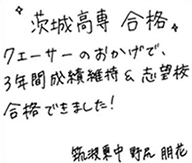 茨城高専 合格
クエーサーのおかげで、
3年間成績維持&志望校
合格できました!
筑波東中 野尻 朋花